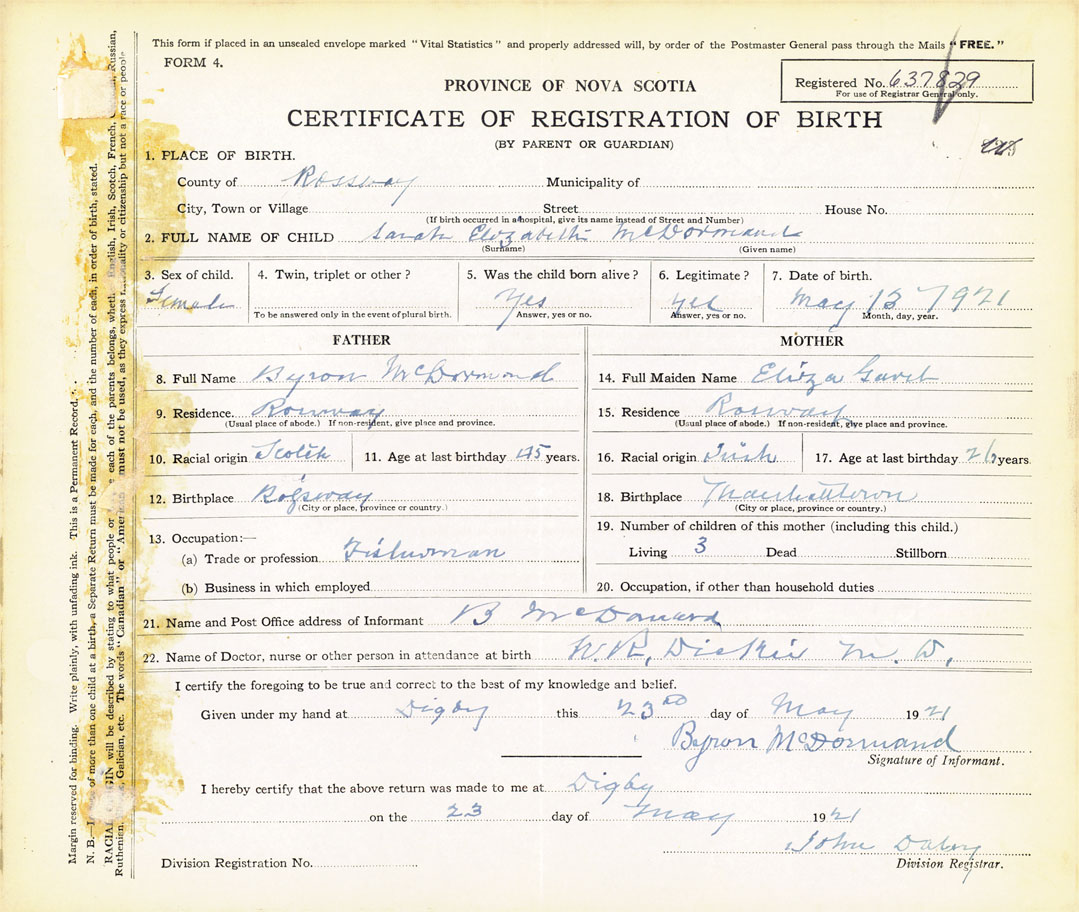 This form if placed in an unsealed envelope marked "Vital Statistics" and properly addressed will, by order of the Postmaster General pass through the Mails "FREE."
FORM 4.
Registered No. 637829
For use of Registrar General only.
PROVINCE OF NOVA SCOTIA
CERTIFICATE OF REGISTRATION OF BIRTH
(BY PARENT OR GUARDIAN)
1. PLACE OF BIRTH.
County of Rossway Municipality of
City, Town or Village Street House No.
(If birth occurred in a hospital, give its name instead of Street and Number)
2. FULL NAME OF CHILD Sarah Elizabeth McDormand
(Surname) (Given name)
3. Sex of child. 4. Twin, triplet or other? 5. Was the child born alive? 6. Legitimate? 7. Date of birth.
Female Yes Yes May 13 1921
To be answered only in the event of plural birth. Answer, yes or no. Answer, yes or no. Month, day, year.
FATHER MOTHER
8. Full Name Byron McDormand 14. Full Maiden Name Eliza
9. Residence. Rossway 15. Residence Rossway
(Usual place of abode.) If non-resident, give place and province. (Usual place of abode.) If non-resident, give place and province.
10. Racial origin Scotch 11. Age at last birthday years. 16. Racial origin Irish 17. Age at last birthday years
12. Birthplace Rossway 18. Birthplace Marshalltown
(City or place, province or country.) (City or place, province or country.)
13. Occupation:— 19. Number of children of this mother (including this child.)
(a) Trade or profession Fisherman Living 3 Dead Stillborn
(b) Business in which employed 20. Occupation, if other than household duties
21. Name and Post Office address of Informant B McDormand
22. Name of Doctor, nurse or other person in attendance at birth W.R. Dickie M.D.
I certify the foregoing to be true and correct to the best of my knowledge and belief.
Given under my hand at Digby this 23rd day of May 1921
Byron McDormand
Signature of Informant.
I hereby certify that the above return was made to me at Digby
on the 23 day of May 1921
John Daley
Division Registration No. Division Registrar.
Margin reserved for binding. Write plainly, with unfading ink. This is a Permanent Record.
N. B.— of more than one child at a birth, a Separate Return must be made for each, and the number of each, in order of birth, stated.
RACIAL ORIGIN will be described by stating to what people or each of the parents belongs, English, Irish, Scotch, French, Russian,
Ruthenian, Galician, etc. The words "Canadian" or "American" must not be used, as they express nationality or citizenship but not a race or people